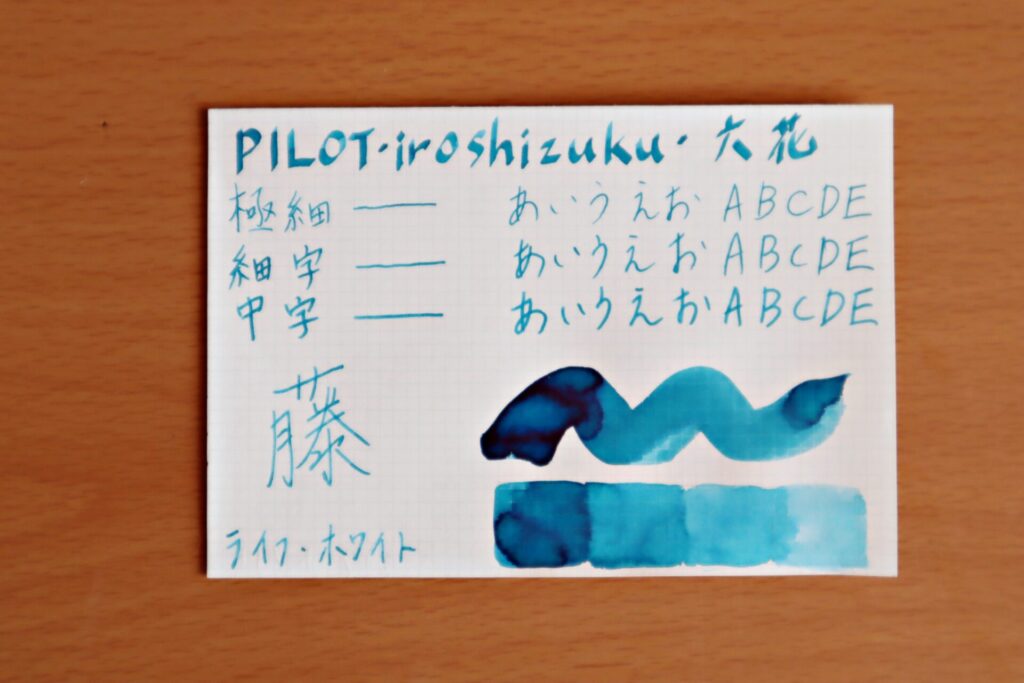 PILOT・iroshizuku・六花
極細 ― あいうえお ABCDE
細字 ― あいうえお ABCDE
中字 ― あいうえお ABCDE
藤
ライフ・ホワイト